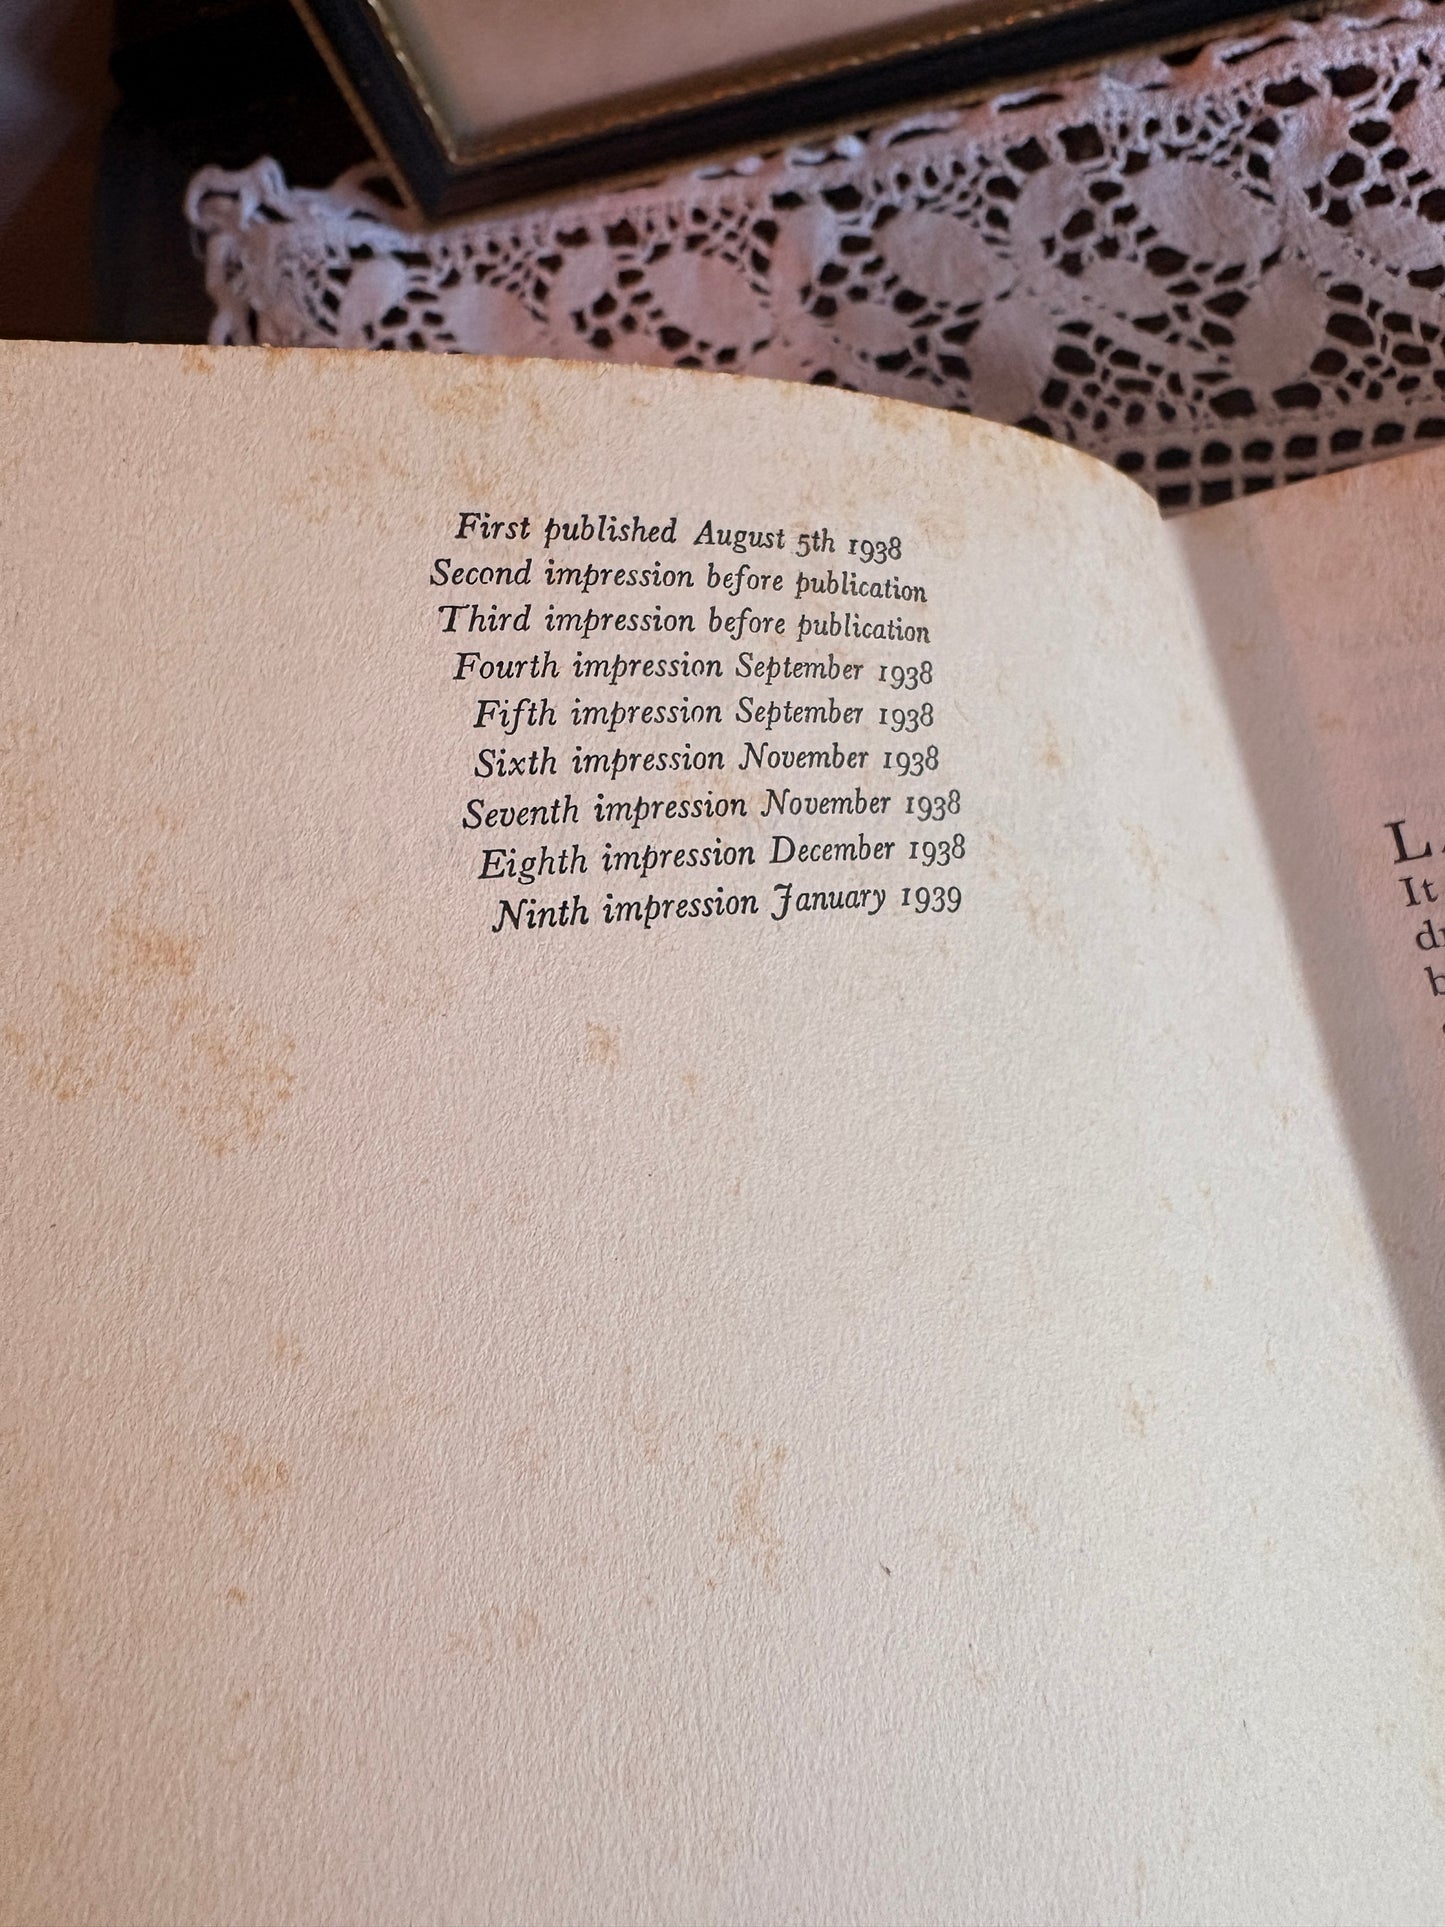 First published August 5th 1938
Second impression before publication
Third impression before publication
Fourth impression September 1938
Fifth impression September 1938
Sixth impression November 1938
Seventh impression November 1938
Eighth impression December 1938
Ninth impression January 1939
It